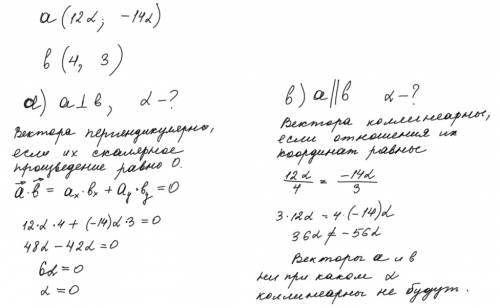 a (12α; -14α)
b (4, 3)
a) a⊥b, α-?
Вектора перпендикулярны,
если их скалярное
произведение равно 0.
a⃗·b⃗ = aₓ·bₓ + a_y·b_y = 0
12·α·4 + (-14)α·3 = 0
48α - 42α = 0
6α = 0
α = 0
b) a∥b α-?
Вектора коллинеарны,
если отношения их
координат равны
12α/4 = -14α/3
3·12α = 4·(-14)α
36α ≠ -56α
Векторы a и b
ни при каком α
коллинеарны не будут.